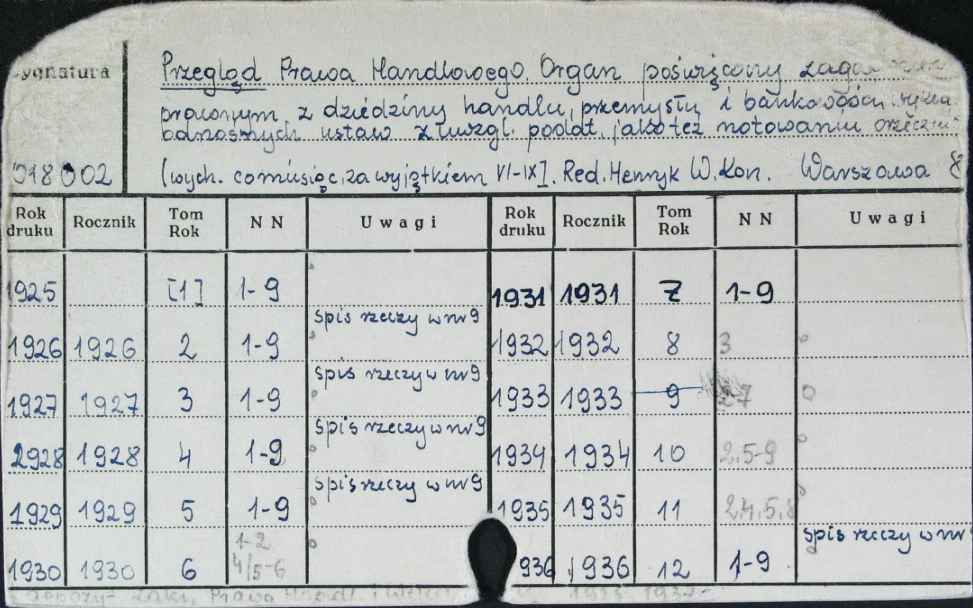 ygnatura
Przegląd Prawa Handlowego. Organ poświęcony
prawnym z dziedziny handlu, przemysłu i bankowości
odnośnych ustaw z uwzgl. podat. jako też notowaniu
018002 [wych. comiesiąc, za wyjątkiem VI-IX]. Red. Henryk W. Kon. Warszawa 8
Rok druku Rocznik Tom Rok N N Uwagi Rok druku Rocznik Tom Rok N N Uwagi
1925 [1] 1-9 1931 1931 7 1-9
spis rzeczy w nr 9
1926 1926 2 1-9 1932 1932 8 3
spis rzeczy w nr 9
1927 1927 3 1-9 1933 1933 9
spis rzeczy w nr 9
1928 1928 4 1-9 1934 1934 10 2.5-9
spis rzeczy w nr 9
1929 1929 5 1-9 1935 1935 11 2,4,5,8
spis rzeczy w nr
1930 1930 6 1-2 4/5-6 936 1936 12 1-9
Prawa Handl.